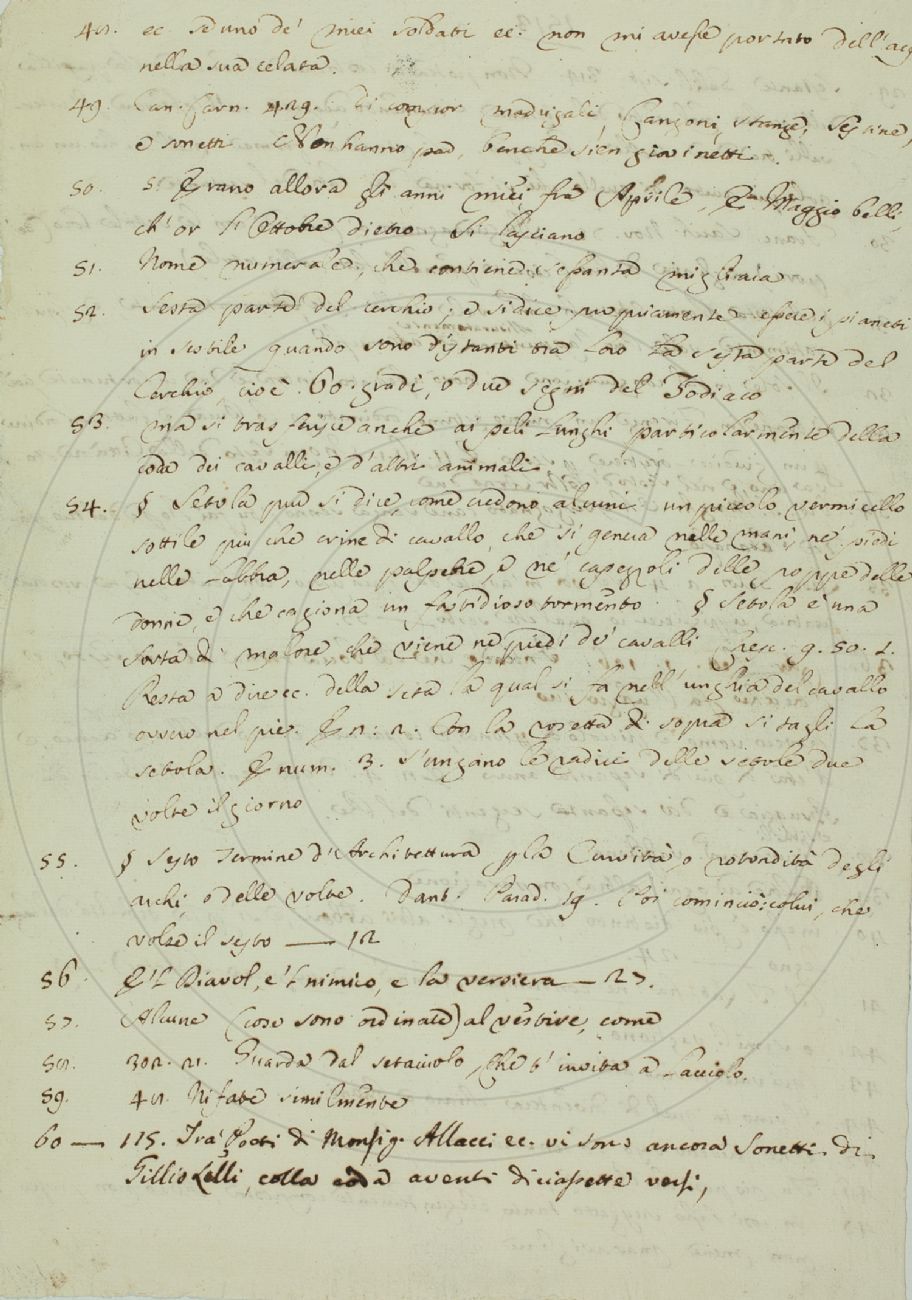 48. ec. se uno de' miei soldati ec. non mi avesse portato dell'acq
nella sua celata.
49. Can. Carn. 429. Di compor madrigali, Canzoni, stanze, sestine,
e sonetti Non hanno par, benchè sien giovinetti.
50. Erano allora gli anni miei fra Aprile, E Maggio belli,
ch' or l' Ottobre dietro Si lasciano
51. Nome numerale, che contiene sessanta migliaia
52. Sesta parte del cerchio; e si dice propriamente essere i pianeti
in sestile quando sono distanti tra loro la sesta parte del
Cerchio, cioè 60. gradi, o due segni del Zodiaco
53. ma si trasferisce anche ai peli lunghi particolarmente della
coda dei cavalli, e d'altri animali
54. § Setola pur si dice, come credono alcuni un piccolo vermicello
sottile più che crine di cavallo, che si genera nelle mani, ne' piedi
nelle labbra, nelle palpebre, e ne' capezzoli delle poppe delle
donne, e che cagiona un fastidioso tormento. § Setola è una
sorta di malore che viene ne' piedi de' cavalli Cresc. 9. 50. 1.
Resta a dire ec. della seta la qual si fa nell' unghia del cavallo
ovvero nel piè. E n. 2. Con la rosetta di sopra si tagli la
setola. E num. 3. S'ungano le radici delle setole due
volte il giorno
55. § Sesto Termine d'Architettura p la Curvità, o rotondità degli
archi, o delle volte. Dant. Parad. 19. Poi cominciò: colui, che
volse il sesto — 12
56. E 'l Diavol, e 'l nimico, e la versiera — 27.
57. Alcune (cose sono ordinate) al vestire, come
58. 302. 21. Guarda dal setaiuolo, Che t' invita a Lacciolo.
59. 48. Rifate similmente
60 — 115. Tra' Poeti di Monsig. Allacci ec. vi sono ancora Sonetti di
Gillio Lelli, colla coda aventi diciassette versi,